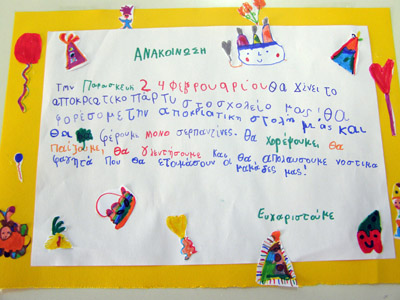 ΑΝΑΚΟΙΝΩΣΗ
Την Παρασκευη 24 Φεβρουαρίου θα γίνει το
αποκριατικο πάρτυ στο σχολείο μας! Θα
φορέσομε την αποκριατικη στολη μας και
θα φέρουμε μονο σερπαντίνες. Θα χορέψουμε, θα
παίξουμε, θα γλεντήσουμε και θα απολαυσουμε νοστιμα
φαγητά που θα ετοιμάσουν οι μαμάδες μας!
Ευχαριστούμε